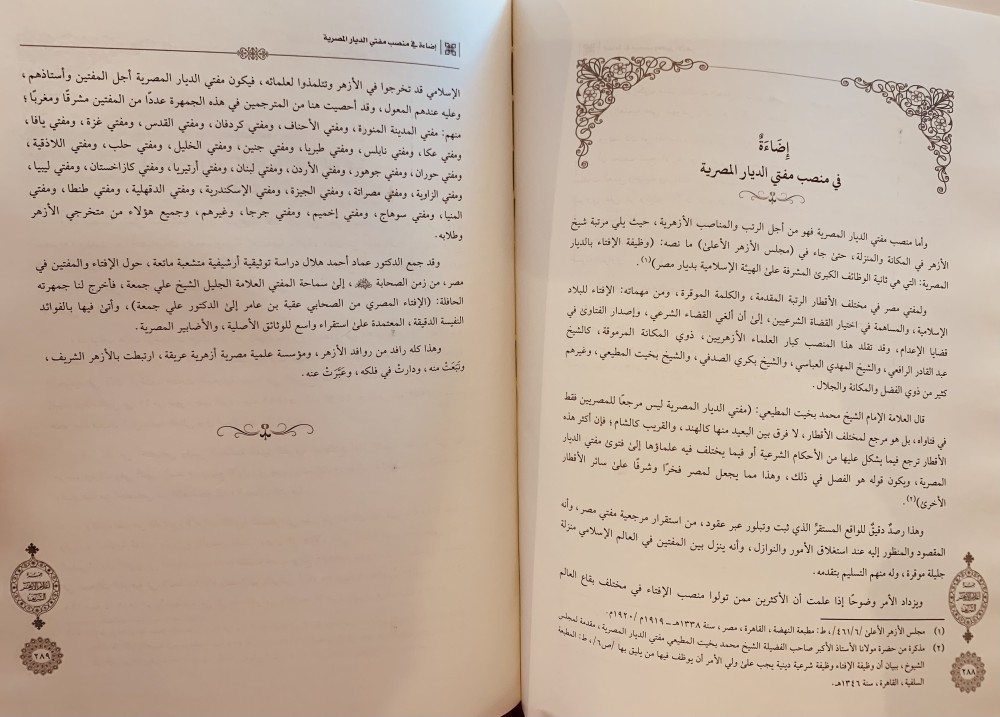 إِضَاءَةٌ
في منصب مفتي الديار المصرية
وأما منصب مفتي الديار المصرية فهو من أجل الرتب والمناصب الأزهرية، حيث يلي مرتبة شيخ
الأزهر في المكانة والمنزلة، حتىٰ جاء في (مجلس الأزهر الأعلىٰ) ما نصه: (وظيفة الإفتاء بالديار
المصرية: التي هي ثانية الوظائف الكبرىٰ المشرفة علىٰ الهيئة الإسلامية بديار مصر)(١).
ولمفتي مصر في مختلف الأقطار الرتبة المقدمة، والكلمة الموقرة، ومن مهماته: الإفتاء للبلاد
الإسلامية، والمساهمة في اختيار القضاة الشرعيين، إلىٰ أن ألغي القضاء الشرعي، وإصدار الفتاوىٰ في
قضايا الإعدام، وقد تقلد هذا المنصب كبار العلماء الأزهريين، ذوي المكانة المرموقة، كالشيخ
عبد القادر الرافعي، والشيخ المهدي العباسي، والشيخ بكري الصدفي، والشيخ بخيت المطيعي، وغيرهم
كثير من ذوي الفضل والمكانة والجلال.
قال العلامة الإمام الشيخ محمد بخيت المطيعي: (مفتي الديار المصرية ليس مرجعًا للمصريين فقط
في فتاواه، بل هو مرجع لمختلف الأقطار، لا فرق بين البعيد منها كالهند، والقريب كالشام؛ فإن أكثر هذه
الأقطار ترجع فيما يشكل عليها من الأحكام الشرعية أو فيما يختلف فيه علماؤها إلىٰ فتوىٰ مفتي الديار
المصرية، ويكون قوله هو الفصل في ذلك، وهذا مما يجعل لمصر فخرًا وشرفًا علىٰ سائر الأقطار
الأخرىٰ)(٢).
وهذا رصدٌ دقيقٌ للواقع المستقرِّ الذي ثبت وتبلور عبر عقود، من استقرار مرجعية مفتي مصر، وأنه
المقصود والمنظور إليه عند استغلاق الأمور والنوازل، وأنه ينزل بين المفتين في العالم الإسلامي منزلة
جليلة موقرة، وله منهم التسليم بتقدمه.
ويزداد الأمر وضوحًا إذا علمت أن الأكثرين ممن تولوا منصب الإفتاء في مختلف بقاع العالم
(١) مجلس الأزهر الأعلىٰ /٤٦١/٦، ط: مطبعة النهضة، القاهرة، مصر، سنة ١٣٣٨هـ - ١٩١٩م/١٩٢٠م.
(٢) مذكرة من حضرة مولانا الأستاذ الأكبر صاحب الفضيلة الشيخ محمد بخيت المطيعي مفتي الديار المصرية، مقدمة لمجلس
الشيوخ، ببيان أن وظيفة الإفتاء وظيفة شرعية دينية يجب علىٰ ولي الأمر أن يوظف فيها من يليق بها /ص٦/، ط: المطبعة
السلفية، القاهرة، سنة ١٣٤٦هـ.
٢٨٨
إضاءة في منصب مفتي الديار المصرية
الإسلامي قد تخرجوا في الأزهر وتتلمذوا لعلمائه، فيكون مفتي الديار المصرية أجل المفتين وأستاذهم،
وعليه عندهم المعول، وقد أحصيت هنا من المترجمين في هذه الجمهرة عددًا من المفتين مشرقًا ومغربًا؛
منهم: مفتي المدينة المنورة، ومفتي الأحناف، ومفتي كردفان، ومفتي القدس، ومفتي غزة، ومفتي يافا،
ومفتي عكا، ومفتي نابلس، ومفتي طبريا، ومفتي جنين، ومفتي الخليل، ومفتي حلب، ومفتي اللاذقية،
ومفتي حوران، ومفتي جوهور، ومفتي الأردن، ومفتي لبنان، ومفتي أرتيريا، ومفتي كازاخستان، ومفتي ليبيا،
ومفتي الزاوية، ومفتي مصراتة، ومفتي الجيزة، ومفتي الإسكندرية، ومفتي الدقهلية، ومفتي طنطا، ومفتي
المنيا، ومفتي سوهاج، ومفتي إخميم، ومفتي جرجا، وغيرهم، وجميع هؤلاء من متخرجي الأزهر
وطلابه.
وقد جمع الدكتور عماد أحمد هلال دراسة توثيقية أرشيفية متشعبة ماتعة، حول الإفتاء والمفتين في
مصر، من زمن الصحابة ﷺ، إلىٰ سماحة المفتي العلامة الجليل الشيخ علي جمعة، فأخرج لنا جمهرته
الحافلة: (الإفتاء المصري من الصحابي عقبة بن عامر إلىٰ الدكتور علي جمعة)، وأتىٰ فيها بالفوائد
النفيسة الدقيقة، المعتمدة علىٰ استقراء واسع للوثائق الأصلية، والأضابير المصرية.
وهذا كله رافد من روافد الأزهر، ومؤسسة علمية مصرية أزهرية عريقة، ارتبطت بالأزهر الشريف،
ونَبَعَتْ منه، ودارتْ في فلكه، وعَبَّرَتْ عنه.
٢٨٩